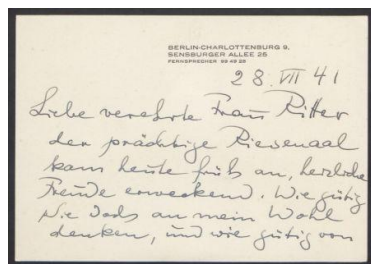 BERLIN-CHARLOTTENBURG 9,
SENSBURGER ALLEE 26
FERNSPRECHER 99 49 28
28. VII 41
Liebe verehrte Frau Ritter
der prächtige Riesenaal
kam heute früh an, herzliche
Freude erweckend. Wie gütig
Sie doch an mein Wohl
denken, und wie gütig von